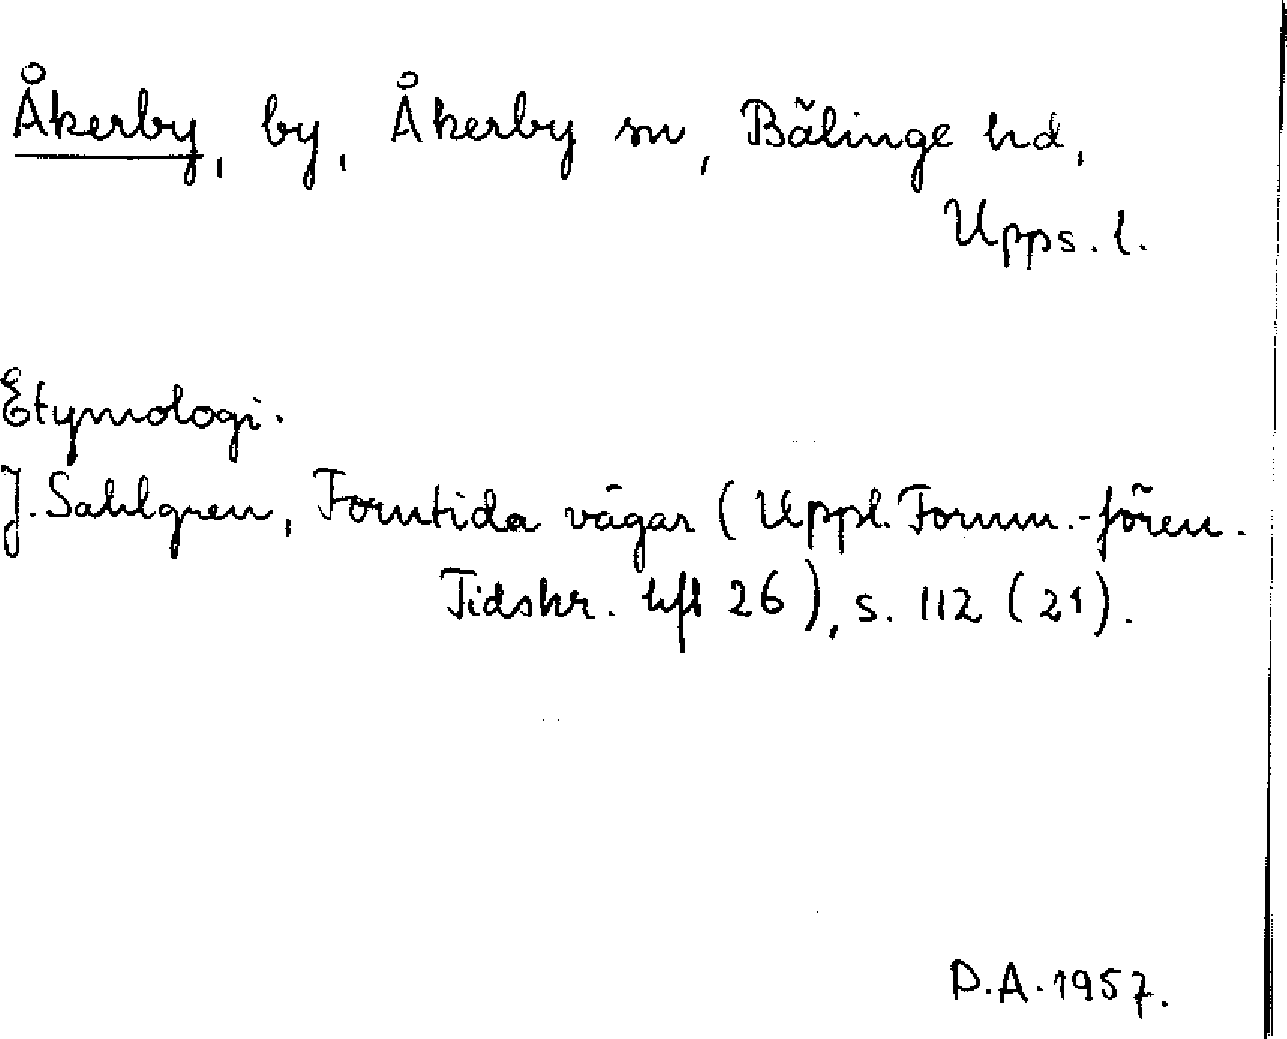 Åkerby, by, Åkerby sn, Bälinge hd,
Upps. l.
Etymologi.
J. Sahlgren, Forntida vägar (Uppl. Fornm.-fören.
Tidskr. hft 26), s. 112 (21).
D.A. 1957.